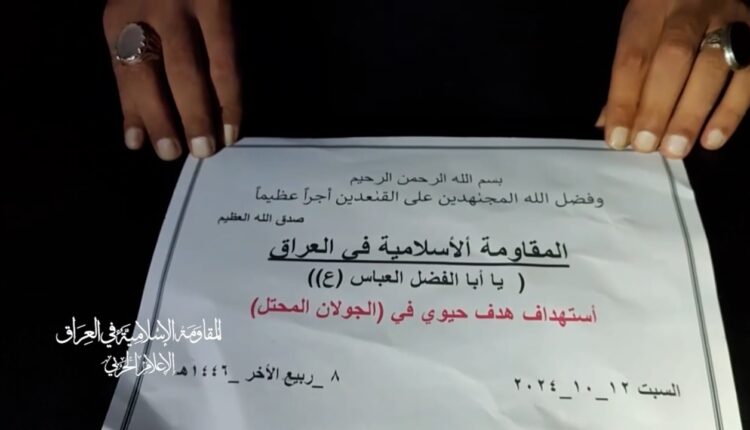 بسم الله الرحمن الرحيم
وفضل الله المجتهدين على القنعدين أجراً عظيماً
صدق الله العظيم
المقاومة ألأسلامية في العراق
( يا أبا الفضل العباس (ع))
أستهداف هدف حيوي في (الجولان المحتل)
السبت ١٢_١٠_٢٠٢٤
٨ _ربيع الأخر _١٤٤٦هـ
المقاومة الإسلامية في العراق
الإعلام الحربي